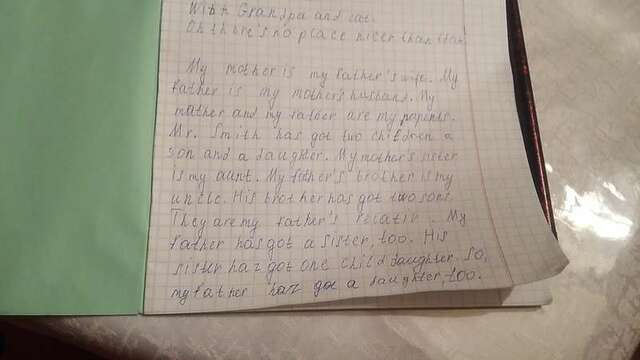 With Grandpa and
Oh there's no place nicer than
My mother is my father's wife. My
father is my mother's husband. My
mother and my father are my parents.
Mr. Smith has got two children a
son and a daughter. My mother's sister
is my aunt. My father's brother is my
uncle. His brother has got two sons.
They are my father's relativ. My
father has got a sister, too. His
sister has got one child daughter. So,
my father has got a daughter too.